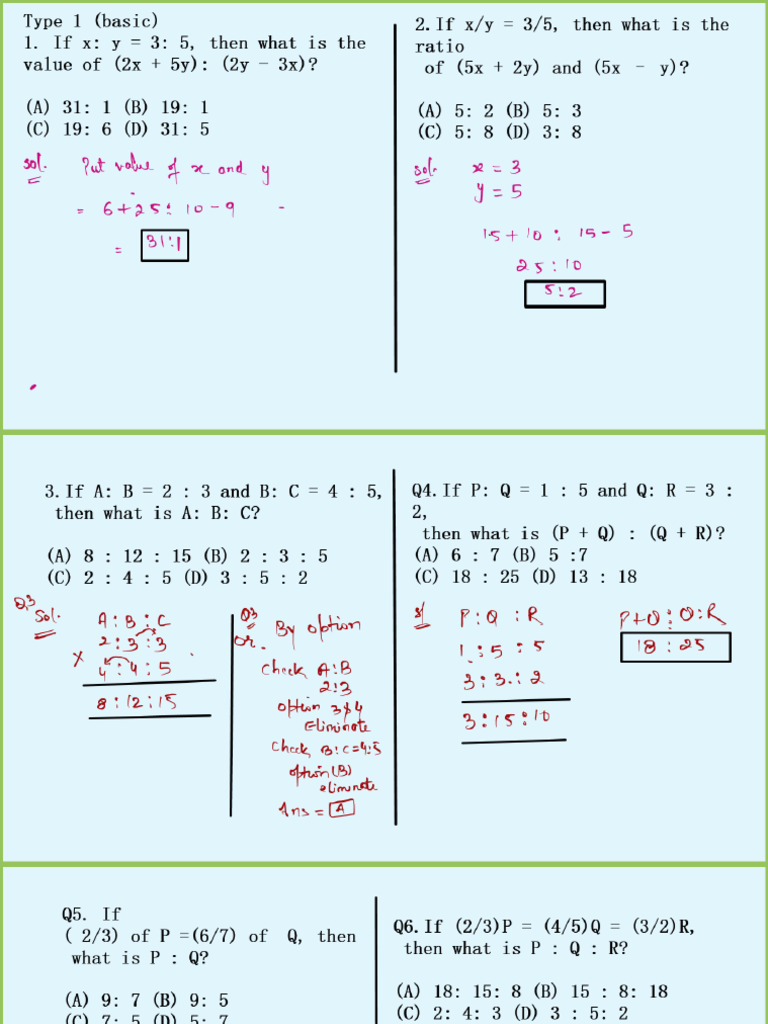 Type 1 (basic)
1. If x: y = 3: 5, then what is the
value of (2x + 5y): (2y - 3x)?
(A) 31: 1 (B) 19: 1
(C) 19: 6 (D) 31: 5
Sol.
Put value of x and y
= 6+25: 10-9
= 31:1
2.If x/y = 3/5, then what is the
ratio
of (5x + 2y) and (5x - y)?
(A) 5: 2 (B) 5: 3
(C) 5: 8 (D) 3: 8
Sol.
x = 3
y = 5
15+10 : 15-5
25:10
5:2
3.If A: B = 2 : 3 and B: C = 4 : 5,
then what is A: B: C?
(A) 8 : 12 : 15 (B) 2 : 3 : 5
(C) 2 : 4 : 5 (D) 3 : 5 : 2
Q.3
Sol.
A:B:C
2:3:3
x 4:4:5
8:12:15
Q3
Or.
By option
Check A:B
2:3
option 3&4
Eliminate
Check B:C=4:5
option(B)
eliminate
Ans = A
Q4.If P: Q = 1 : 5 and Q: R = 3 :
2,
then what is (P + Q) : (Q + R)?
(A) 6 : 7 (B) 5 :7
(C) 18 : 25 (D) 13 : 18
P:Q:R
1:5:5
3:3:2
3:15:10
P+Q:Q:R
18:25
Q5. If
( 2/3) of P =(6/7) of Q, then
what is P : Q?
(A) 9: 7 (B) 9: 5
(C) 7: 5 (D) 5: 7
Q6.If (2/3)P = (4/5)Q = (3/2)R,
then what is P : Q : R?
(A) 18: 15: 8 (B) 15 : 8: 18
(C) 2: 4: 3 (D) 3 : 5: 2